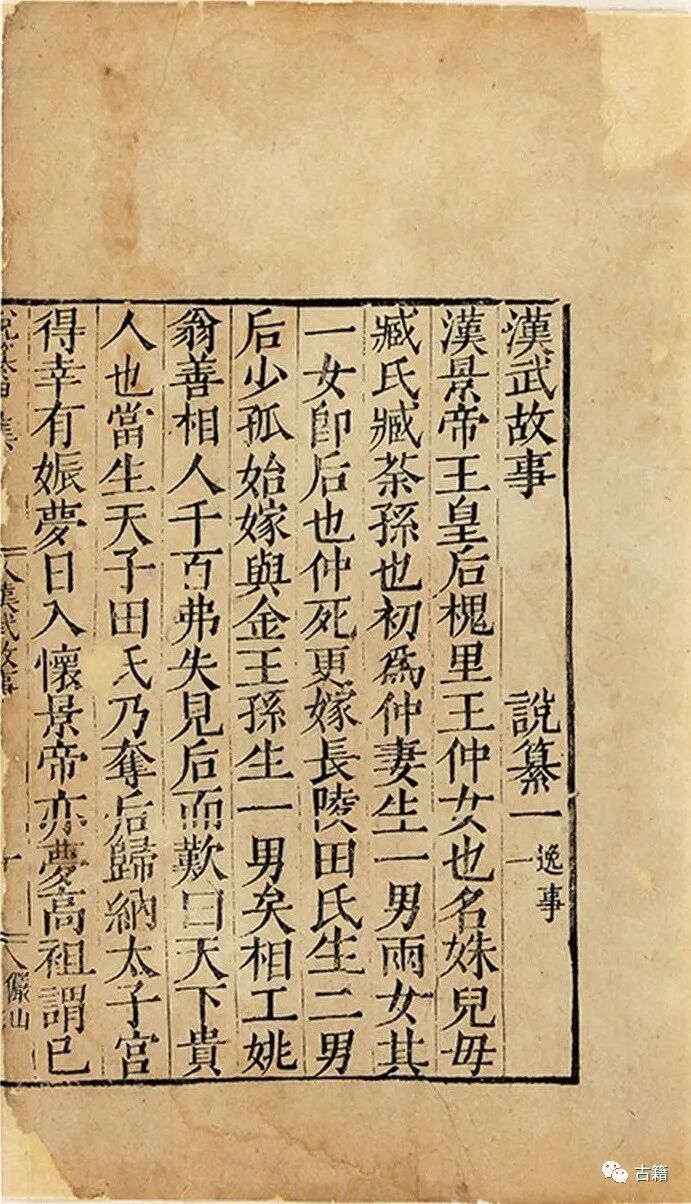 漢武故事 說纂一 逸事一
漢景帝王皇后槐里王仲女也名姝兒毋
臧氏臧荼孫也初爲仲妻生一男兩女其
一女卽后也仲死更嫁長陵田氏生二男
后少孤始嫁與金王孫生一男矣相工姚
翁善相人千百弗失見后而歎曰天下貴
人也當生天子田氏乃奪后歸納太子宮
得幸有娠夢日入懷景帝亦夢高祖謂已
漢武故事
古籍